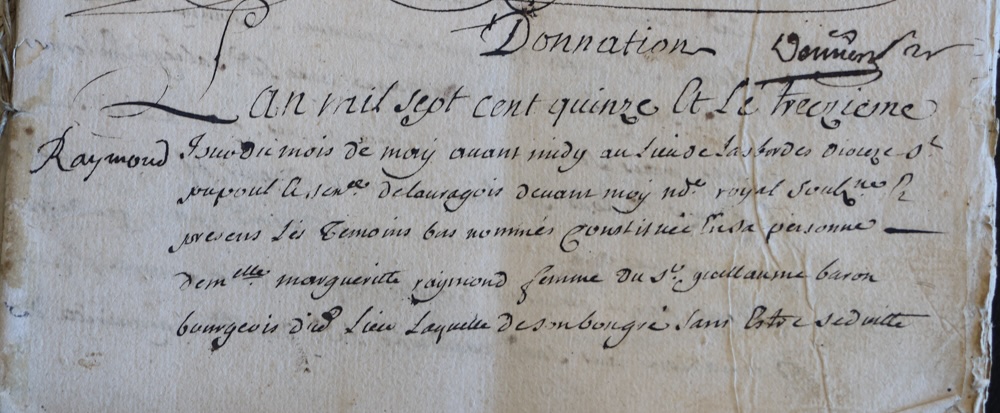 Donnation
L an mil sept cent quinze Et Le Treizieme
Raymond Jour du mois de may avant midy au Lieu de Lasbordes dioceze St
papoul et sen.ee delauragois devant moy no.re royal soub.ne Et
presens Les Temoins bas nommés Constituée En sa personne
dem.elle margueritte raymond femme du Sr. guillaume baron
bourgeois dud Lieu Laquelle de son bongré sans Estre seduitte